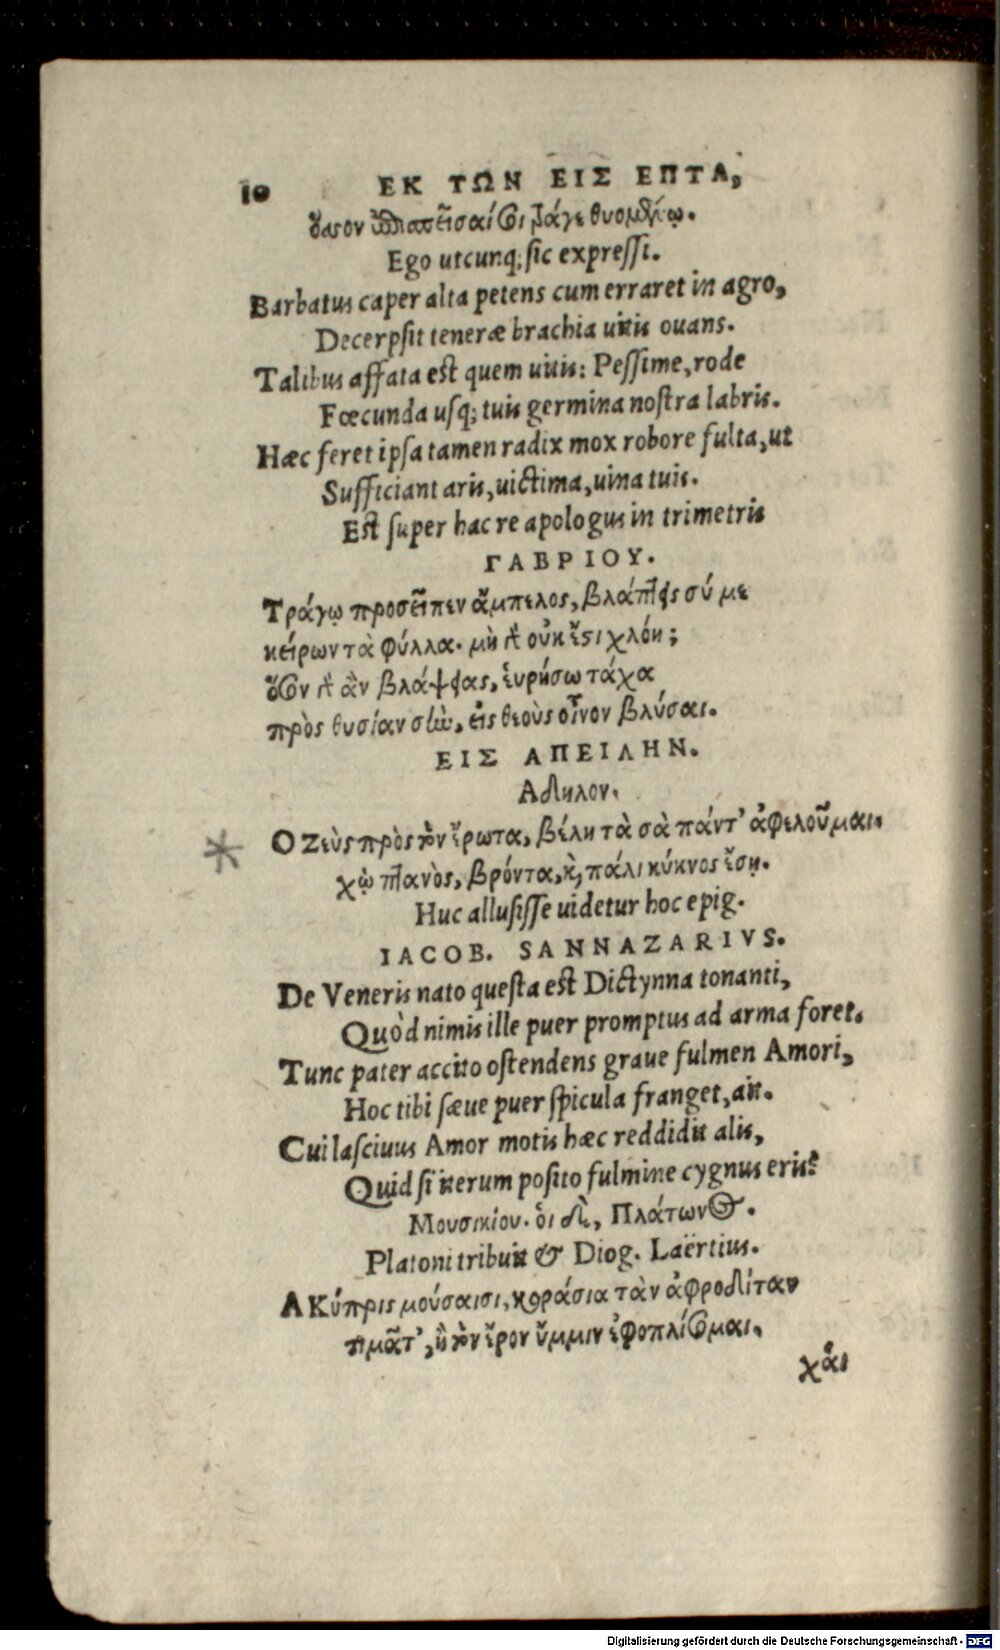 10 ΕΚ ΤΩΝ ΕΙΣ ΕΠΤΑ,
ὅσσον ἐπισπεῖσαί σοι τράγε θυομένῳ.
Ego utcunq; sic expressi.
Barbatus caper alta petens cum erraret in agro,
Decerpsit teneræ brachia uitis ouans.
Talibus affata est quem uitis: Pessime, rode
Fœcunda usq; tuis germina nostra labris.
Hæc feret ipsa tamen radix mox robore fulta, ut
Sufficiant aris, uictima, uina tuis.
Est super hac re apologus in trimetris
ΓΑΒΡΙΟΥ.
Τράγῳ προσεῖπεν ἄμπελος, βλάπτεις σύ με
κείρων τὰ φύλλα. μὴ γὸ οὐκ ἔστι χλόη;
ὅσον γὸ ἂν βλάψῃς, εὑρήσω τάχα
πρὸς θυσίαν σὴν, εἰς θεοὺς οἶνον βλύσαι.
ΕΙΣ ΑΠΕΙΛΗΝ.
Αδηλον.
Ο Ζεὺς πρὸς τὸν ἔρωτα, βέλη τὰ σὰ πάντ’ ἀφελοῦμαι.
χὠ πτανὸς, βρόντα, καὶ πάλι κύκνος ἔσῃ.
Huc allusisse uidetur hoc epig.
IACOB. SANNAZARIVS.
De Veneris nato questa est Dictynna tonanti,
Quòd nimis ille puer promptus ad arma foret.
Tunc pater accito ostendens graue fulmen Amori,
Hoc tibi sæue puer spicula franget, ait.
Cui lasciuus Amor motis hæc reddidit alis,
Quid si iterum posito fulmine cygnus eris?
Μουσικίου. οἱ δὲ, Πλάτωνος.
Platoni tribuit & Diog. Laërtius.
Α Κύπρις μούσαισι, κοράσια τὰν ἀφροδίταν
τιμᾶτ’, ἢ τὸν ἔρον ὔμμιν ἐφοπλίσομαι.
χἀι
Digitalisierung gefördert durch die Deutsche Forschungsgemeinschaft - DFG